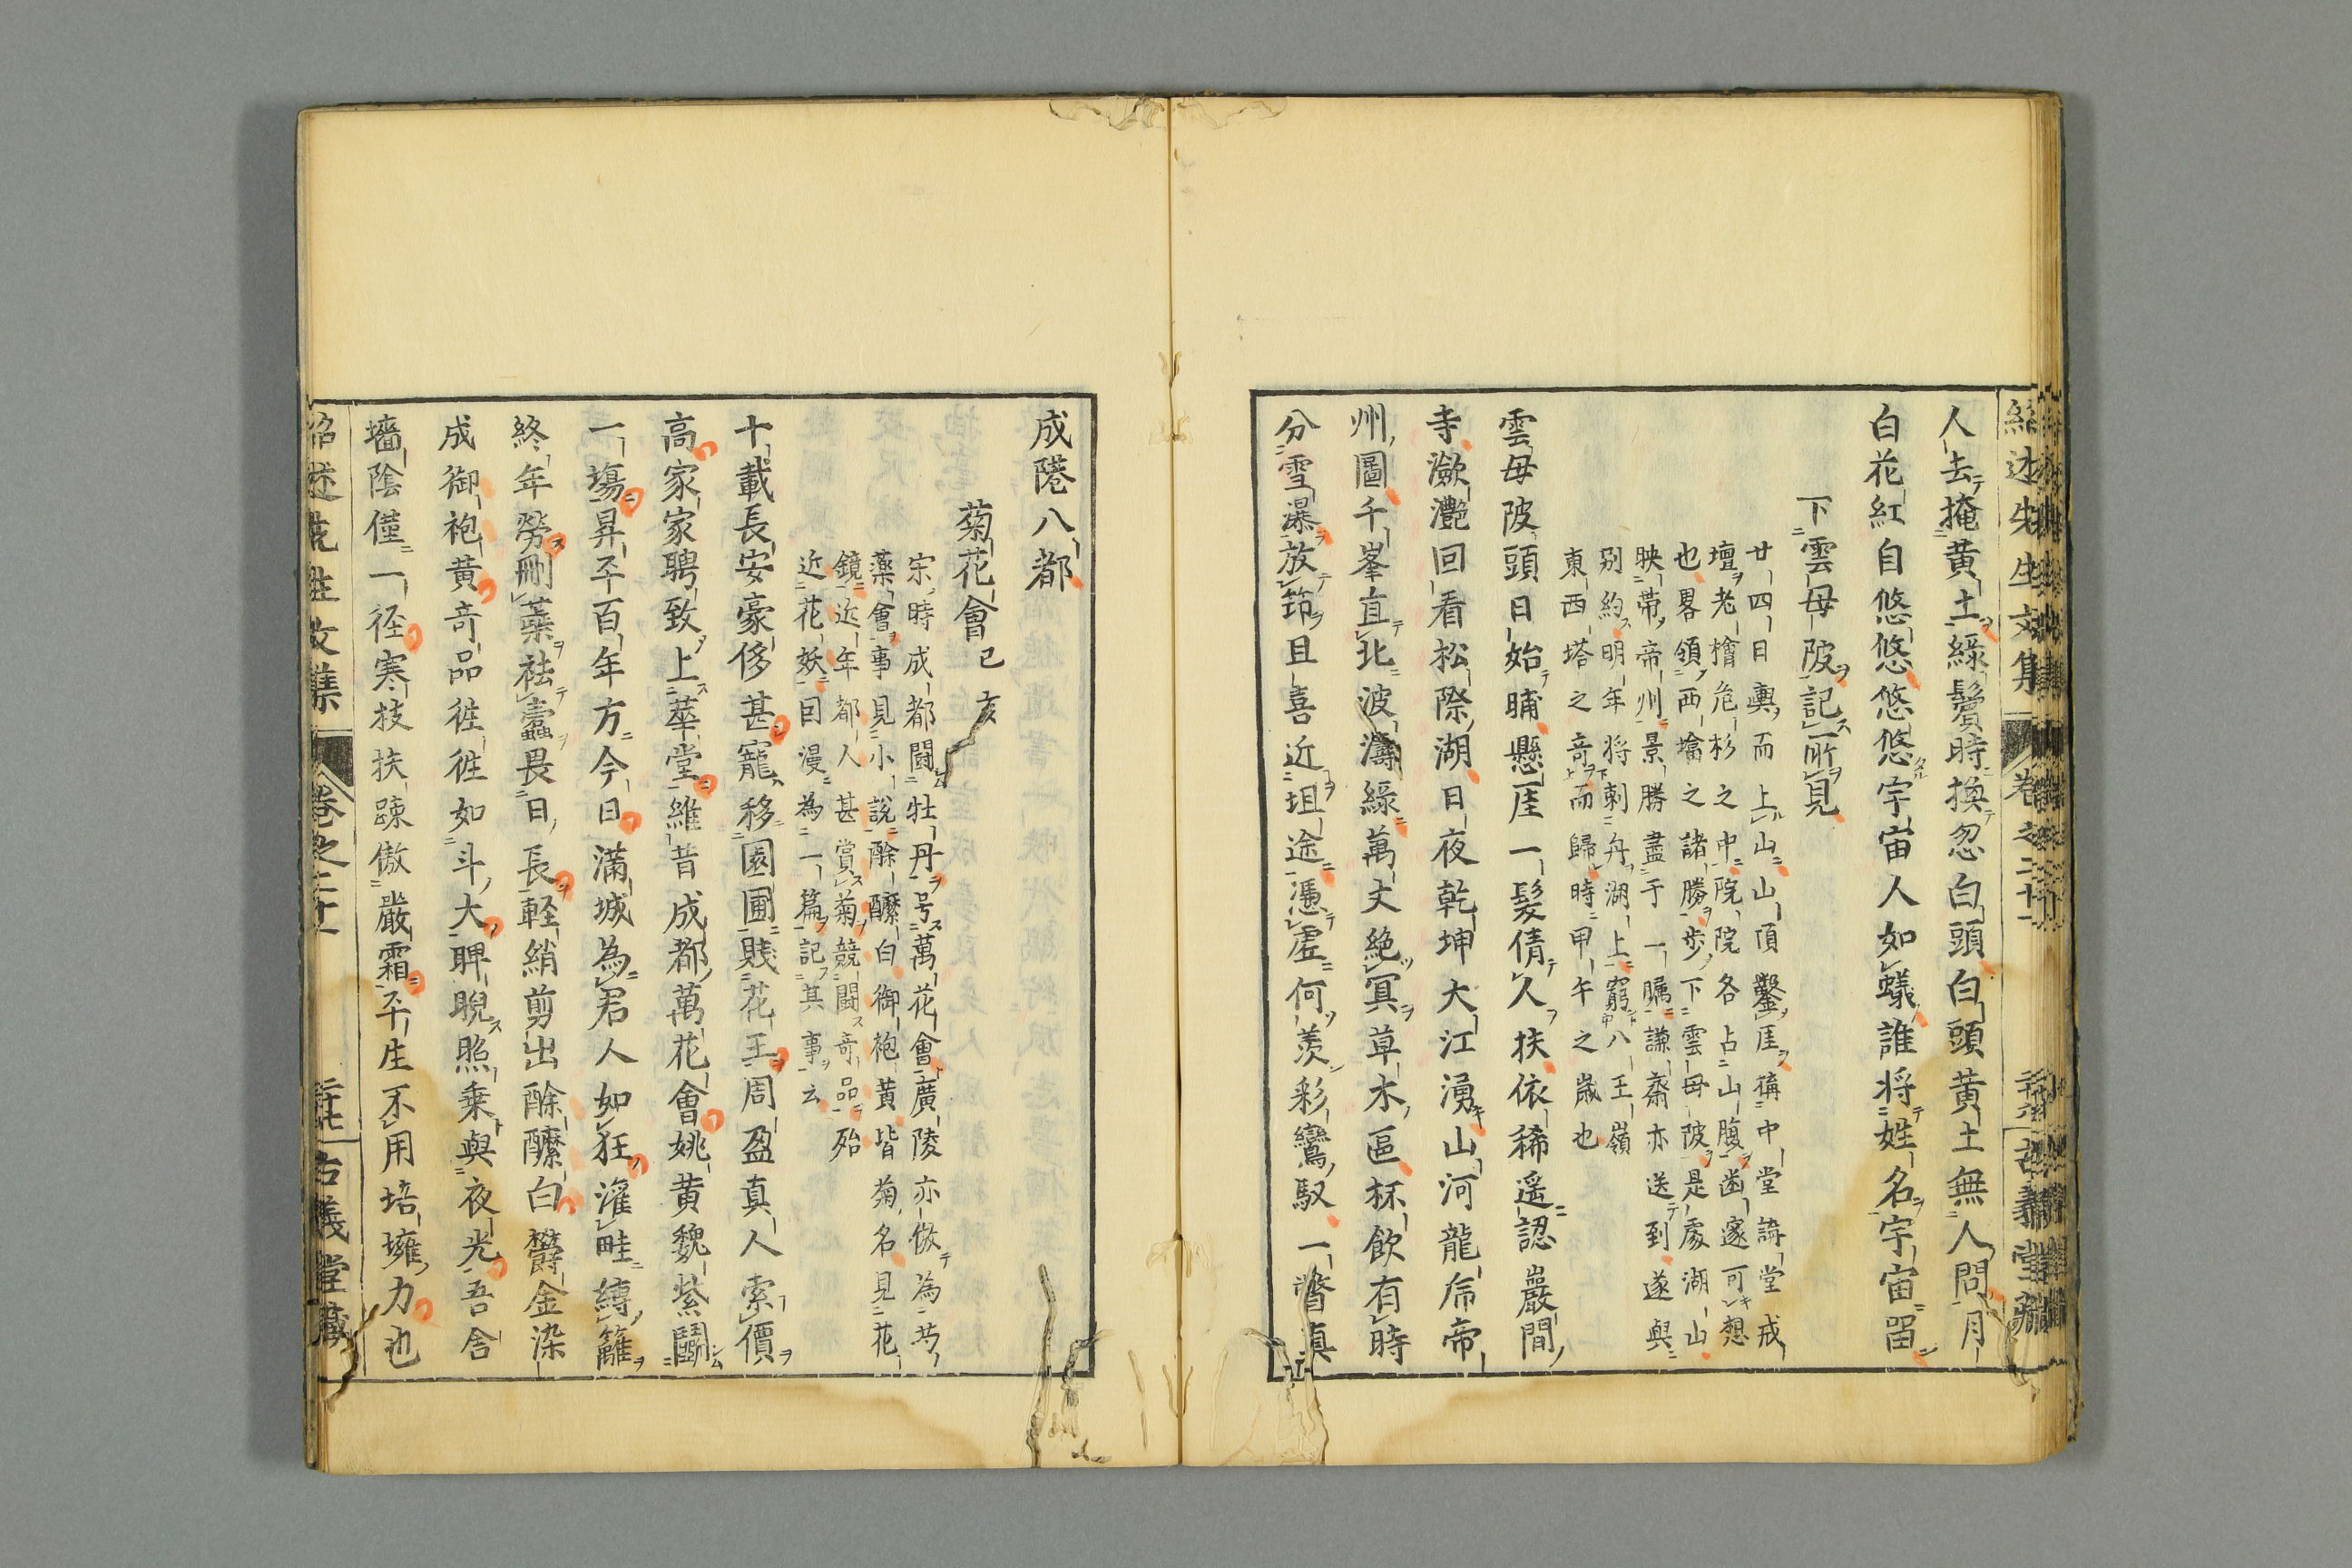 紹述先生文集 卷之二十一 古義堂藏
人去掩黄土綠鬢時換忽白頭白頭黄土無人問月
白花紅自悠悠悠悠宇宙人如蟻誰将姓名宇宙留
下雲母陂記所見
廿四日輿而上山山頂鑿厓構中堂講堂戒
壇老檜危杉之中院院各占山腹幽邃可想
也畧領西塔之諸勝步下雲母陂是處湖山
映帶帝州景勝盡于一矚謙齋亦送到遂與
別約明年将刺舟湖上窮八王嶺
東西塔之奇而歸時甲午之歲也
雲母陂頭日始晡懸厓一髮倩人扶依稀遥認巖間
寺瀲灔回看松際湖日夜乾坤大江湧山河龍虎帝
州圖千峯直北波濤綠萬丈絶冥草木區杯飲有時
分雪瀑放筇且喜近坦途憑虛何羨彩鸞馭一瞥真
成隘八都
菊花會己亥
宋時成都闘牡丹号萬花會廣陵亦倣為芍
藥會事見小說酴醿白御袍黄皆菊名見花
鏡近年都人甚賞菊競闘奇品殆
近花妖因漫為一篇記其事云
十載長安豪侈甚寵移園圃賤花王周盈真人索價
高家家聘致上華堂維昔成都萬花會姚黄魏紫鬪
一塲昇平百年方今日滿城為君人如狂灌畦縛籬
終年勞刪蘂祛蠹畏日長軽綃剪出酴醿白欝金染
成御袍黄奇品徃徃如斗大睥睨照乗與夜光吾舍
墻陰僅一径寒枝扶踈傲嚴霜平生不用培壅力也
紹述先生文集 卷之二十一 古義堂藏